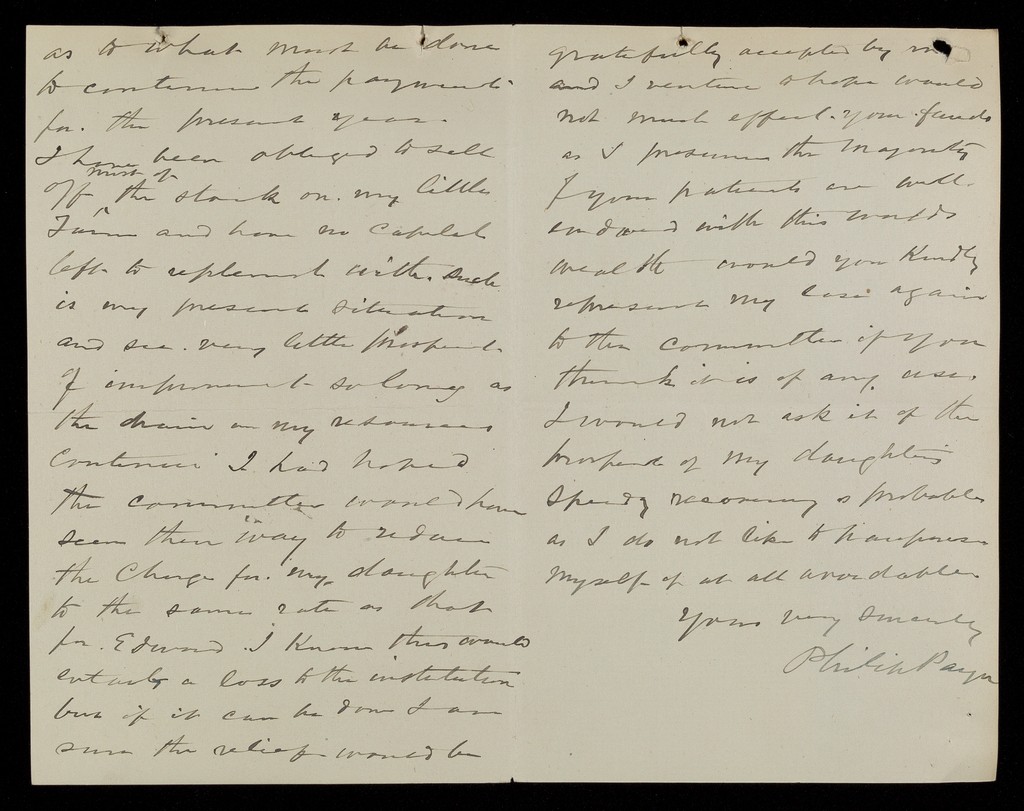 as to what must be done
to continue the payments
for the present year.
I have been obliged to sell
off most of the stock on my little
Farm and have no capital
left to replenish with. Such
is my present situation
and see very little prospect
of improvement so long as
the drain on my resources
continues I had hoped
the committee would have
seen their way to reduce
the charge for my daughter
to the same rate as that
for Edward. I know this would
entail a loss to the institution
but if it can be done I am
sure the relief would be
gratefully accepted by me
and I venture to hope would
not much effect your funds
as I presume the majority
of your patients are well
endowed with this worlds
wealth would you kindly
represent my case again
to the committee if you
think it is of any use.
I would not ask it if the
prospect of my daughters
speedy recovery is probable
as I do not like to
myself if at all avoidable
Yours very sincerely
Philip